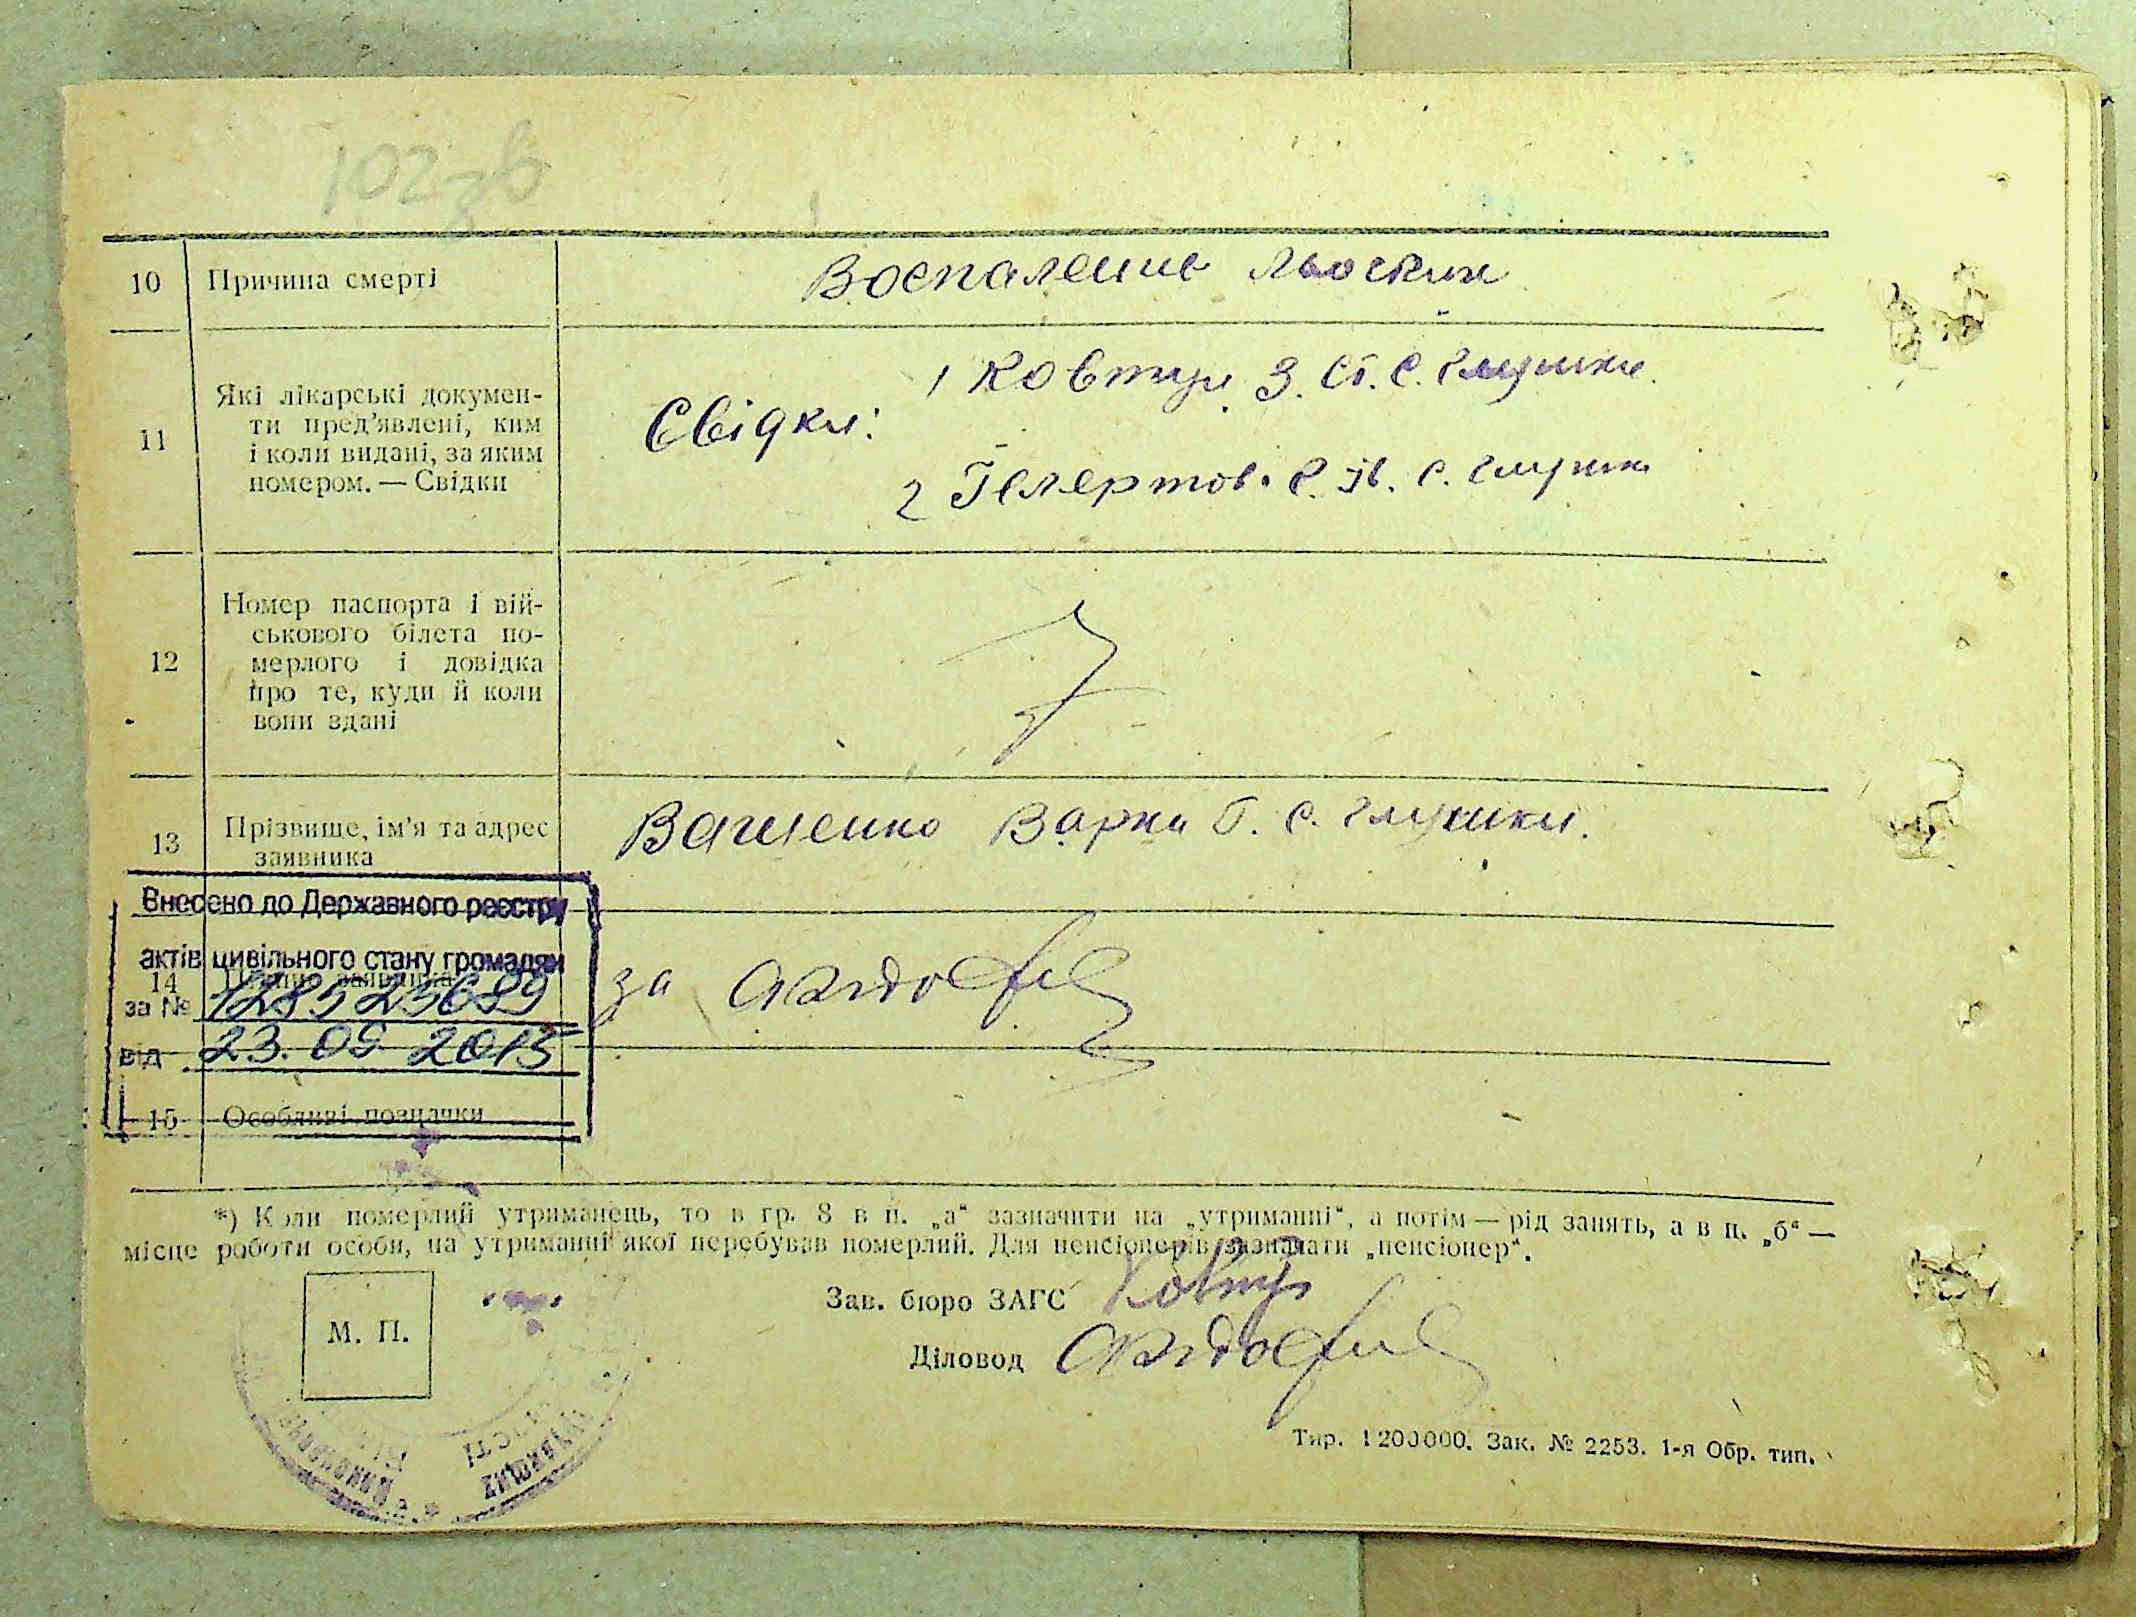 102зв
10 Причина смерті Воспаление льоских
11 Які лікарські докумен-
ти пред'явлені, ким
і коли видані, за яким
номером. — Свідки
Свідки:
1 Ковтун З. Ст. с. Глушки.
2 с. Глушки
12 Номер паспорта і вій-
ськового білета по-
мерлого і довідка
про те, куди й коли
вони здані
13 Прізвище, ім'я та адрес
заявника
Ващенко Варка Г. с. Глушки.
Внесено до Державного реєстру
актів цивільного стану громадян
14 за
за № 1285 23689
від 23.09 2015
15 Особливі позначки
*) Коли померлий утриманець, то в гр. 8 в п. „а“ зазначити на „утриманні“, а потім — рід занять, а в п. „б“ —
місце роботи особи, на утриманні якої перебував померлий. Для пенсіонерів зазначати „пенсіонер“.
М. П.
Зав. бюро ЗАГС Ковтун
Діловод
Тир. 1200000. Зак. № 2253. 1-я Обр. тип.